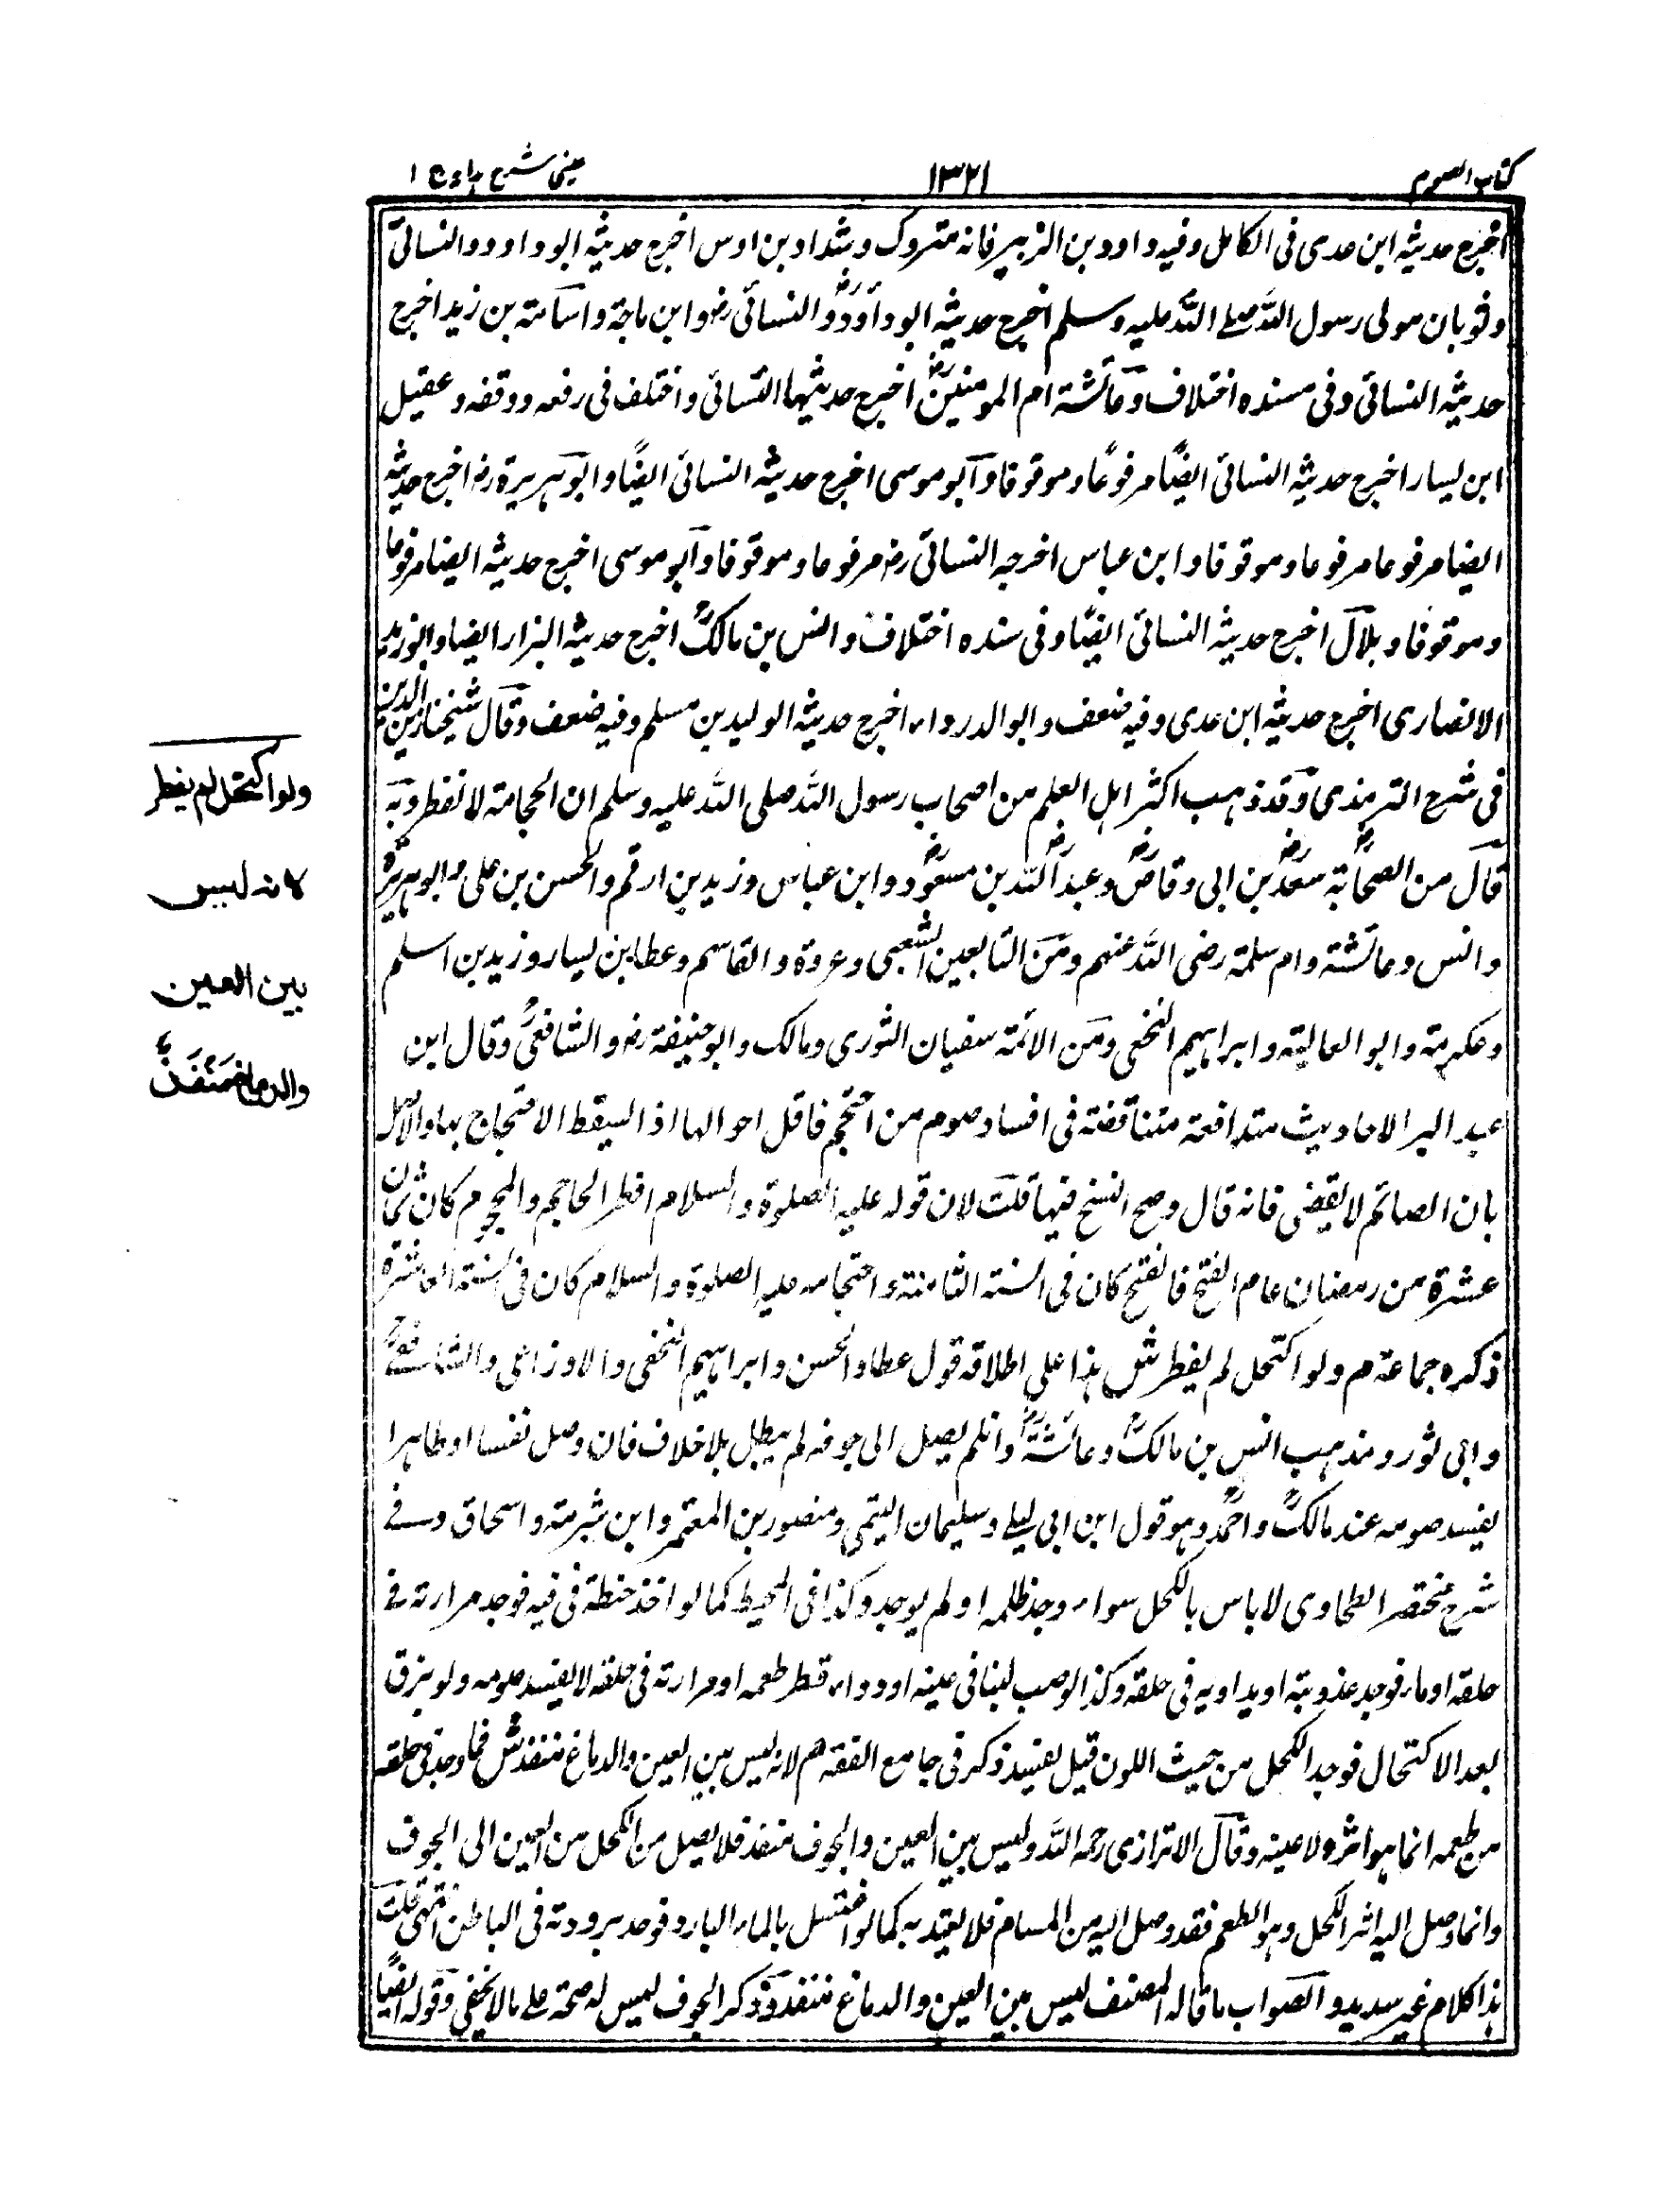 كتاب الصوم
١٣٢١
عينى شرح هداية ج ١
اخرج حديثه ابن عدى فى الكامل وفيه داود بن الزبير فانه متروك وشداد بن اوس اخرج حديثه ابو داود والنسائى
وثوبان مولى رسول الله صلے الله عليه وسلم اخرج حديثه ابو داودؓ والنسائىؓ وابن ماجة واسامة بن زيد اخرج
حديثه النسائى وفى مسنده اختلاف وعائشة ام المومنينؓ اخرج حديثها النسائى واختلف فى رفعه ووقفه وعقيل
ابن يسار اخرج حديثه النسائى ايضًا مرفوعًا وموقوفا وابو موسى اخرج حديثه النسائى ايضًا وابو هريرة رض اخرج حديثه
ايضا مرفوعا مرفوعا وموقوفا وابن عباس اخرجه النسائى رض مرفوعا وموقوفا وابو موسى اخرج حديثه ايضا مرفوعا
وموقوفا وبلال اخرج حديثه النسائى ايضًا وفى سنده اختلاف وانس بن مالكؓ اخرج حديثه البزار ايضا وابو زيد
الانصارى اخرج حديثه ابن عدى وفيه ضعف وابو الدرداء اخرج حديثه الوليد بن مسلم وفيه ضعف وقال شيخنا زين الدين
فى شرح الترمذى وقد ذهب اكثر اهل العلم من اصحاب رسول الله صلى الله عليه وسلم ان الحجامة لا تفطر وبه
قال من الصحابة سعد بن ابى وقاصؓ وعبد الله بن مسعودؓ وابن عباس وزيد بن ارقم والحسن بن على وابو هريرة
وانس وعائشة وام سلمة رضى الله عنهم ومن التابعين الشعبى وعروة والقاسم وعطا بن يسار وزيد بن اسلم
وعكرمة وابو العالية وابراهيم النخعى ومن الائمة سفيان الثورى ومالك وابو حنيفة رض والشافعىؒ وقال ابن
عبد البر الاحاديث متدافعة متناقضة فى افساد صوم من احتجم فاقل احوالها اذ اليسقط الاحتجاج بها والاصل
بان الصائم لا يقضى فانه قال وصح النسخ فيها قلت لان قوله عليه الصلوة والسلام افطر الحاجم والمحجوم كان ثمان
عشرة من رمضان عام الفتح فالفتح كان فى السنة الثامنة واحتجامه عليه الصلوة والسلام كان فى السنة العاشرة
ذكره جماعة م ولو اكتحل لم يفطر ش هذا على اطلاقه قول عطا والحسن وابراهيم النخعى والاوزاعى والشافعىؒ
وابى ثور ومذهب انس بن مالكؓ وعائشةؓ وانلم يصل الى جوفه لم يبطل بلا خلاف فان وصل نفسا او ظاهرا
يفسد صومه عند مالكؒ واحمدؒ وهو قول ابن ابى ليلے وسليمان التيمى ومنصور بن المعتمر وابن شبرمة واسحاق وفے
شرح مختصر الطحاوى لا باس بالكحل سواء وجد طعمه او لم يوجد وكذا فى المحيط كما لو اخذ حنطة فى فيه فوجد مرارته فے
حلقه او ماء فوجد عذوبته او بداويه فى حلقه وكذا لو صب لبنا فى عينه او دواء قطر طعمه او مرارته فى حلقه لا يفسد صومه ولو بزق
بعد الاكتحال فوجد الكحل من حيث اللون قيل يفسد ذكر فى جامع الفقه م لانه ليس بين العين والدماغ منفذ ش فما وجد فى حلقه
من طعمه انما هو اثره لا عينه وقال الاترازى رحمه الله وليس بين العين والجوف منفذ فلا يصل من الكحل من العين الى الجوف
وانما وصل اليه اثر الكحل وهو الطعم فقد وصل اليه من المسام فلا يعتد به كما لو اغتسل بالماء البارد فوجد برودته فى الباطن انتهى قلت
هذا كلام غير سديد والصواب ما قاله المصنف ليس بين العين والدماغ منفذ وذكر الجوف ليس له صحة على ما لا يخفى وقوله ايضًا
ولو اكتحل لم يفطر
لانه ليس
بين العين
والدماغ مَنْفَذٌ